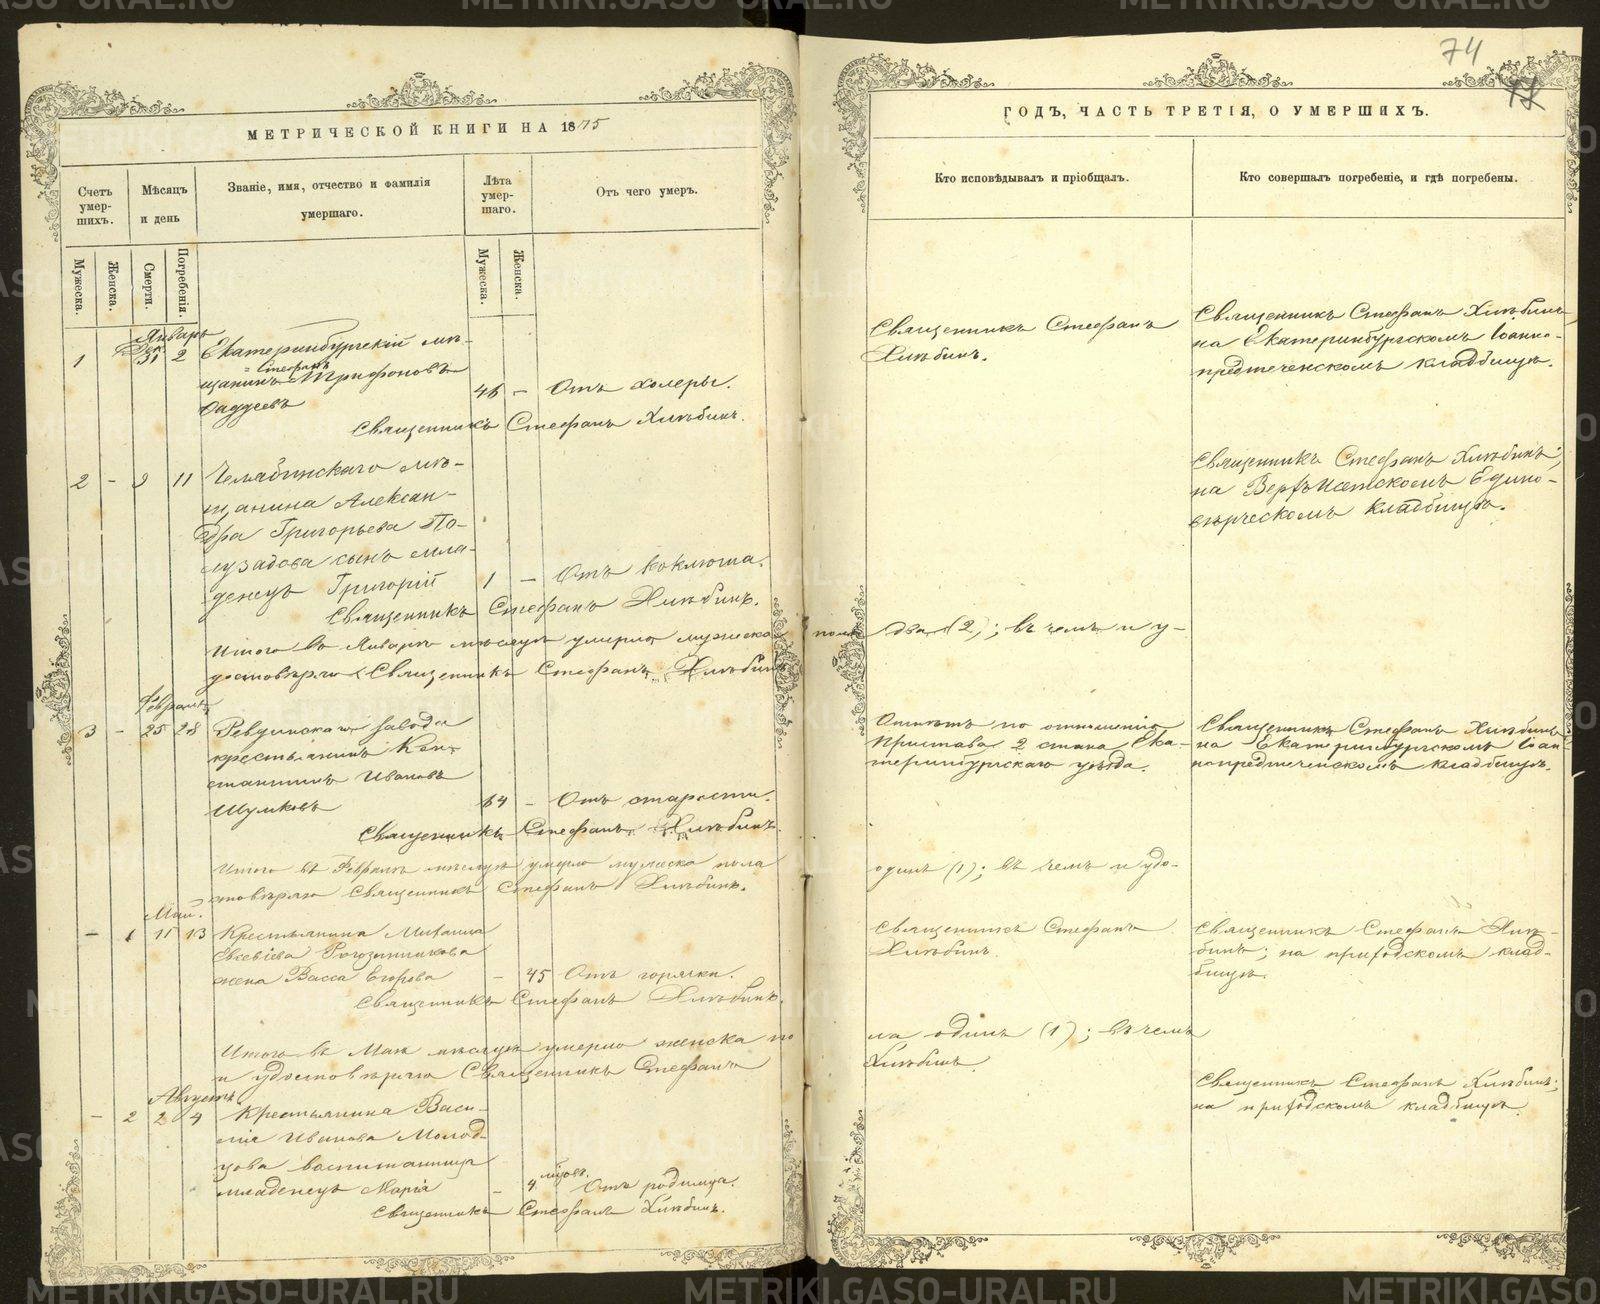 МЕТРИЧЕСКОЙ КНИГИ НА 1875
Счетъ умер-шихъ.
Мѣсяцъ и день
Званіе, имя, отчество и фамилія умершаго.
Лѣта умер-шаго.
Отъ чего умеръ.
Мужеска.
Женска.
Смерти.
Погребенія.
Мужеска.
Женска.
Январь
1 Дек. 31 2 Екатеринбургскій мѣ-
щанинъ Стефанъ Трифоновъ
Фаддеевъ 46 – Отъ холеры.
Священникъ Стефанъ Хлѣбинъ.
2 – 9 11 Челябинскаго мѣ-
щанина Алексан-
дра Григорьева По-
лузадова сынъ мла-
денецъ Григорій 1 – Отъ коклюша.
Священникъ Стефанъ Хлѣбинъ.
Итого въ Январѣ мѣсяцѣ умерло мужеска
достовѣряю Священникъ Стефанъ Хлѣбинъ
Февраль
3 – 25 28 Ревдинскаго завода
крестьянинъ Кон-
стантинъ Ивановъ
Шумковъ 64 – Отъ старости.
Священникъ Стефанъ Хлѣбинъ.
Итого въ Февралѣ мѣсяцѣ умерло мужеска пола
стовѣряю Священникъ Стефанъ Хлѣбинъ.
Май.
– 1 11 13 Крестьянина Михаила
Евсевіева Рогозинникова
жена Васса Егорова – 45 Отъ горячки.
Священникъ Стефанъ Хлѣбинъ.
Итого въ Маѣ мѣсяцѣ умерло женска по
и удостовѣряю Священникъ Стефанъ
Августъ
– 2 2 4 Крестьянина Васи-
лія Иванова Молод-
цова воспитанница
младенецъ Марія – 4 Отъ родимца.
Священникъ Стефанъ Хлѣбинъ.
74
ГОДЪ, ЧАСТЬ ТРЕТІЯ, О УМЕРШИХЪ.
Кто исповѣдывалъ и пріобщалъ.
Кто совершалъ погребеніе, и гдѣ погребены.
Священникъ Стефанъ
Хлѣбинъ.
Священникъ Стефанъ Хлѣбинъ
на Екатеринбургскомъ Іоанно-
предтеченскомъ кладбищѣ.
Священникъ Стефанъ Хлѣбинъ;
на Верхъ-Исетскомъ Едино-
вѣрческомъ кладбищѣ.
пола два (2); въ чемъ и у-
Отпѣтъ по отношенію
Пристава 2 стана Ека-
теринбургскаго уѣзда.
Священникъ Стефанъ Хлѣбинъ
на Екатеринбургскомъ Іоан
нопредтеченскомъ кладбищѣ.
одинъ (1); въ чемъ и удо-
Священникъ Стефанъ
Хлѣбинъ.
Священникъ Стефанъ Хлѣ-
бинъ; на приходскомъ клад-
бищѣ.
ла одинъ (1); въ чемъ
Хлѣбинъ.
Священникъ Стефанъ Хлѣбинъ;
на приходскомъ кладбищѣ.
METRIKI.GASO-URAL.RU